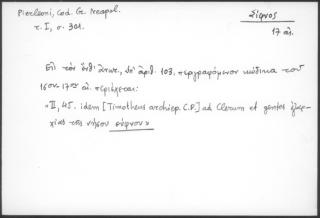 Pierleoni, Cod. Gr. Neapol.
τ. I, σ. 301.
Σίφνος
17 αἰ.
Εἰς τὸν ὑπ' ἀριθ. 103. περιγραφόμενον κώδικα τοῦ
16ου-17ου αἰ. περιέχεται:
"II, 45. idem [Timotheus archiep. C.P.] ad Clerum et gentes
τῆς νήσου σίφνου»